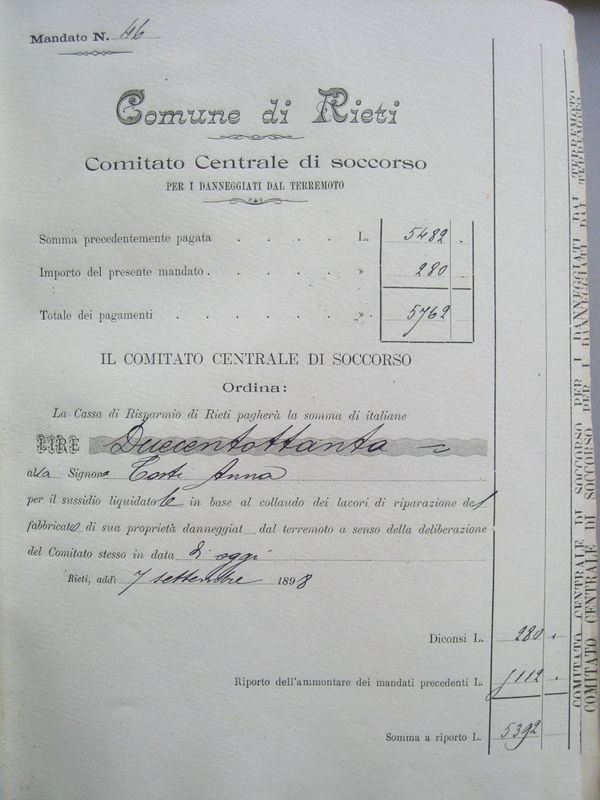 Mandato N. 46
Comune di Rieti
Comitato Centrale di soccorso
PER I DANNEGGIATI DAL TERREMOTO
Somma precedentemente pagata . . . . L. 5482 .
Importo del presente mandato . . . . » 280 .
Totale dei pagamenti . . . . . » 5762
IL COMITATO CENTRALE DI SOCCORSO
Ordina:
La Cassa di Risparmio di Rieti pagherà la somma di italiane
LIRE Duecentottanta
alla Signora Corti Anna
per il sussidio liquidatole in base al collaudo dei lavori di riparazione del
fabbricato di sua proprietà danneggiat dal terremoto a senso della deliberazione
del Comitato stesso in data di oggi
Rieti, addì 7 settembre 1898
Diconsi L. 280 .
Riporto dell'ammontare dei mandati precedenti L. 5112 .
Somma a riporto L. 5392
COMITATO CENTRALE DI SOCCORSO PER I DANNEGGIATI DAL TERREMOTO
COMITATO CENTRALE DI SOCCORSO PER I DANNEGGIATI DAL TERREMOTO